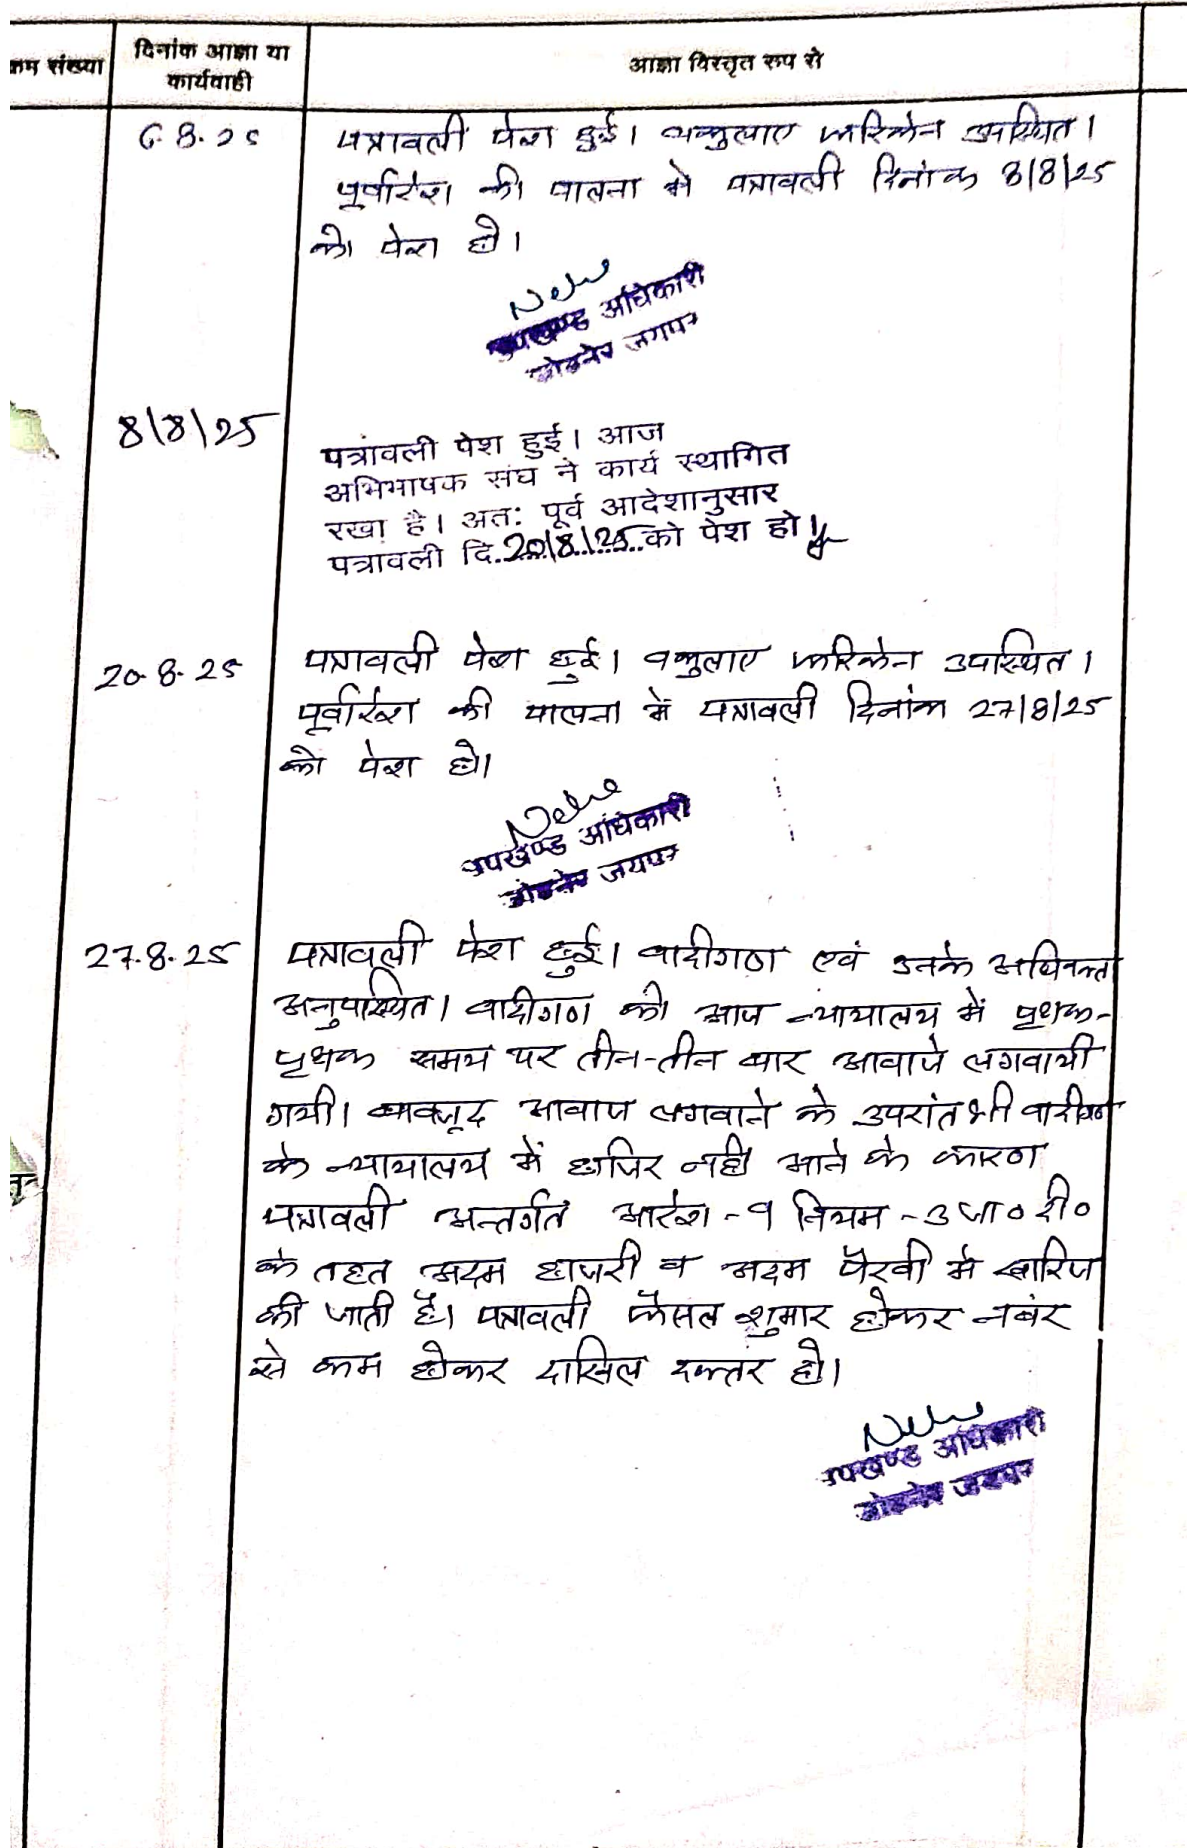 क्रम संख्या
दिनांक आज्ञा या
कार्यवाही
आज्ञा विस्तृत रूप से
6.8.25
पत्रावली पेश हुई। वकुलाए फरिकेन उपस्थित।
पूर्वादेश की पालना मे पत्रावली दिनांक 8/8/25
को पेश हो।
उपखण्ड अधिकारी
जोबनेर जयपुर
8/8/25
पत्रावली पेश हुई। आज
अभिभाषक संघ ने कार्य स्थागित
रखा है। अतः पूर्व आदेशानुसार
पत्रावली दि. 20/8/25 को पेश हो।
20.8.25
पत्रावली पेश हुई। वकुलाए फरिकेन उपस्थित।
पूर्वादेश की पालना में पत्रावली दिनांक 27/8/25
को पेश हो।
उपखण्ड अधिकारी
जोबनेर जयपुर
27.8.25
पत्रावली पेश हुई। वादीगण एवं उनके अधिवक्ता
अनुपस्थित। वादीगण को आज न्यायालय में पृथक-
पृथक समय पर तीन-तीन बार आवाजे लगवायी
गयी। बावजूद आवाज लगवाने के उपरांत भी वादीगण
के न्यायालय में हाजिर नही आने के कारण
पत्रावली अन्तर्गत आदेश-9 नियम-3 जा० दी०
के तहत अदम हाजरी व अदम पैरवी मे खारिज
की जाती है। पत्रावली फैसल शुमार होकर नबंर
से कम होकर दाखिल दफ्तर हो।
उपखण्ड अधिकारी
जोबनेर जयपुर